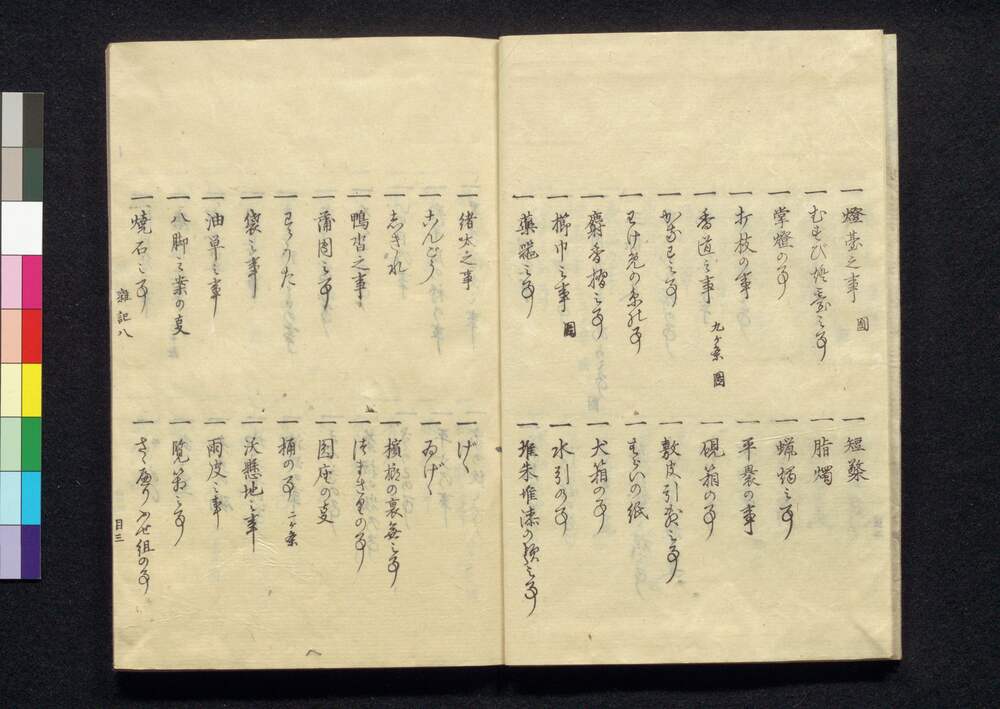 一 燈臺之事 圖
一 むすび燈臺之事
一 掌燈の事
一 打枝の事
一 香道之事 九ケ条 圖
一 かなわ之事
一
一 麝香摺之事
一 櫛巾之事 圖
一 藥器之事
一 短檠
一 脂燭
一 蝋燭之事
一 平裹の事
一 硯箱の事
一 敷皮引敷之事
一 すゞりの紙
一 犬箱の事
一 水引の事
一 堆朱堆漆の類之事
一 緒太之事
一 こんがう
一 しきれ
一 鴨沓之事
一 蒲團之事
一 わらうた
一 袋之事
一 油單之事
一 八脚之案の事
一 燒石之事
一 げゞ
一 ゐげゞ
一 檳榔の裏無之事
一
一 圓座の事
一 桶の事 二ケ条
一 沃懸地之事
一 雨皮之事
一 覧筥之事
一 組の事
雜記八
目三